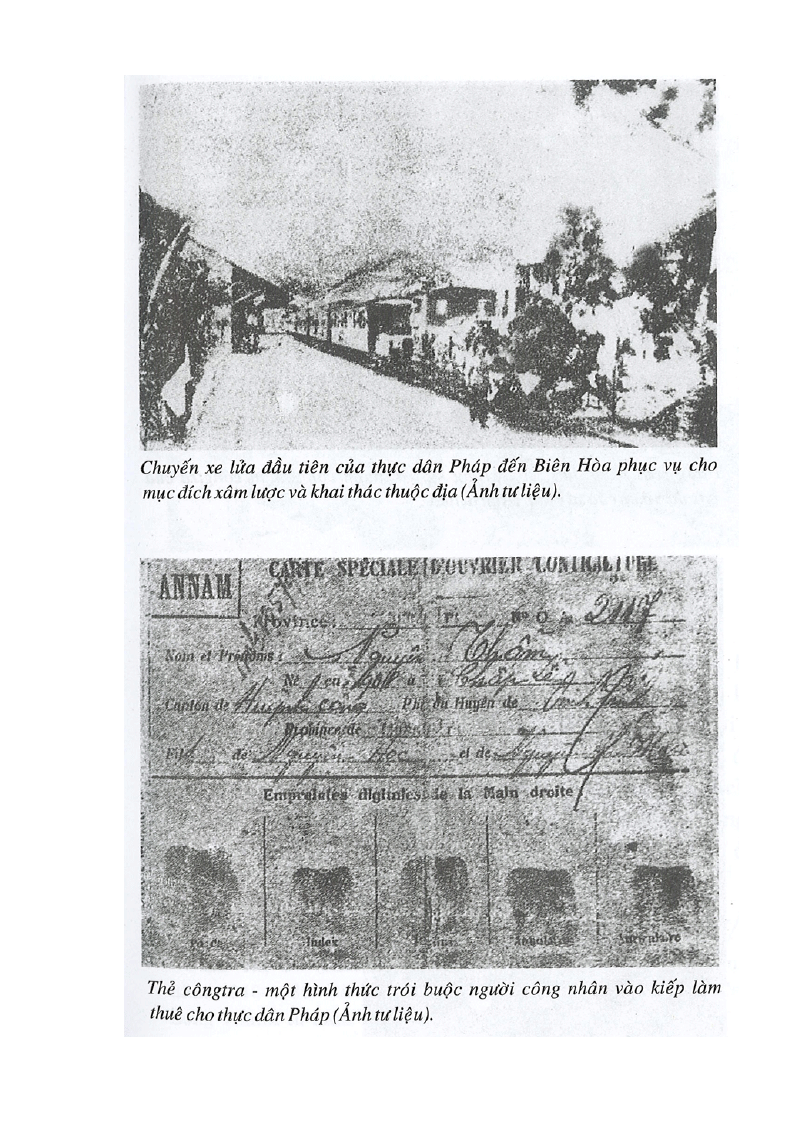 Chuyến xe lửa đầu tiên của thực dân Pháp đến Biên Hòa phục vụ cho
mục đích xâm lược và khai thác thuộc địa (Ảnh tư liệu).
ANNAM
CARTE SPÉCIALE D'OUVRIER CONTRACTUEL
Province: N° 2117
Nom et Prénoms: Nguyên Thâm
Né en 1908 à
Canton de Phủ ou Huyện de
Province de
Fils de Nguyên Học et de Nguyễn
Empreintes digitales de la Main droite
Pouce Index Médius Annulaire Auriculaire
Thẻ côngtra - một hình thức trói buộc người công nhân vào kiếp làm
thuê cho thực dân Pháp (Ảnh tư liệu).